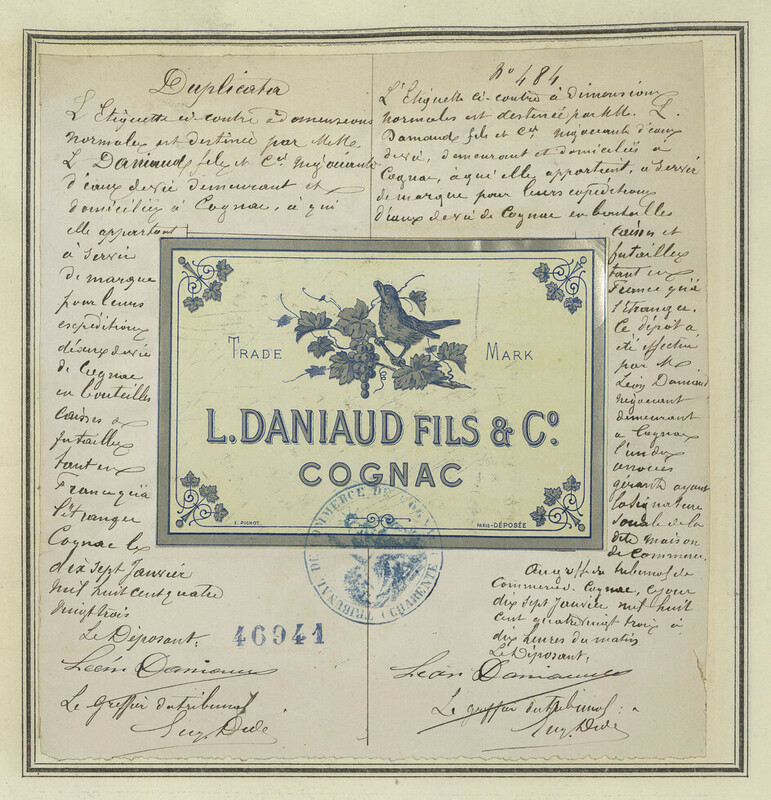 Duplicata
L'Etiquette ci-contre à dimensions
normales est destinée par MMs.
L. Daniaud fils et Cie. Négociants
d'eaux de vie demeurant et
domiciliés à Cognac, à qui
elle appartient
à servir
de marque
pour leurs
expéditions
d'eaux de vie
de Cognac
en bouteilles
caisses &
futailles
tant en
France qu'à
l'étranger
Cognac le
dix sept Janvier
mil huit cent quatre
vingt trois
Le Déposant.
Léon Daniaud
Le greffier du tribunal
Eug. Dude
46941
No 484
L'Etiquette ci-contre à dimensions
normales est destinée par MM. L.
Daniaud fils et Cie Négociants d'eaux
de vie, demeurant et domiciliés à
Cognac, à qui elle appartient, à servir
de marque pour leurs expéditions
d'eaux de vie de Cognac en bouteilles
caisses et
futailles
tant en
France qu'à
l'Etranger.
Ce dépôt a
été effectué
par M.
Léon Daniaud
négociant
demeurant
à Cognac
l'un des
associés
gérants ayant
la signature
sociale de la
dite maison
de Commerce.
Au greffe du tribunal de
Commerce. Cognac, ce jour
dix sept Janvier mil huit
cent quatre vingt trois à
dix heures du matin
Le Déposant,
Léon Daniaud
Le greffier du tribunal:
Eug. Dude
TRADE MARK
L. DANIAUD FILS & Co.
COGNAC
E. PICHOT. PARIS-DÉPOSÉE
TRIBUNAL DE COMMERCE DE COGNAC
(CHARENTE)